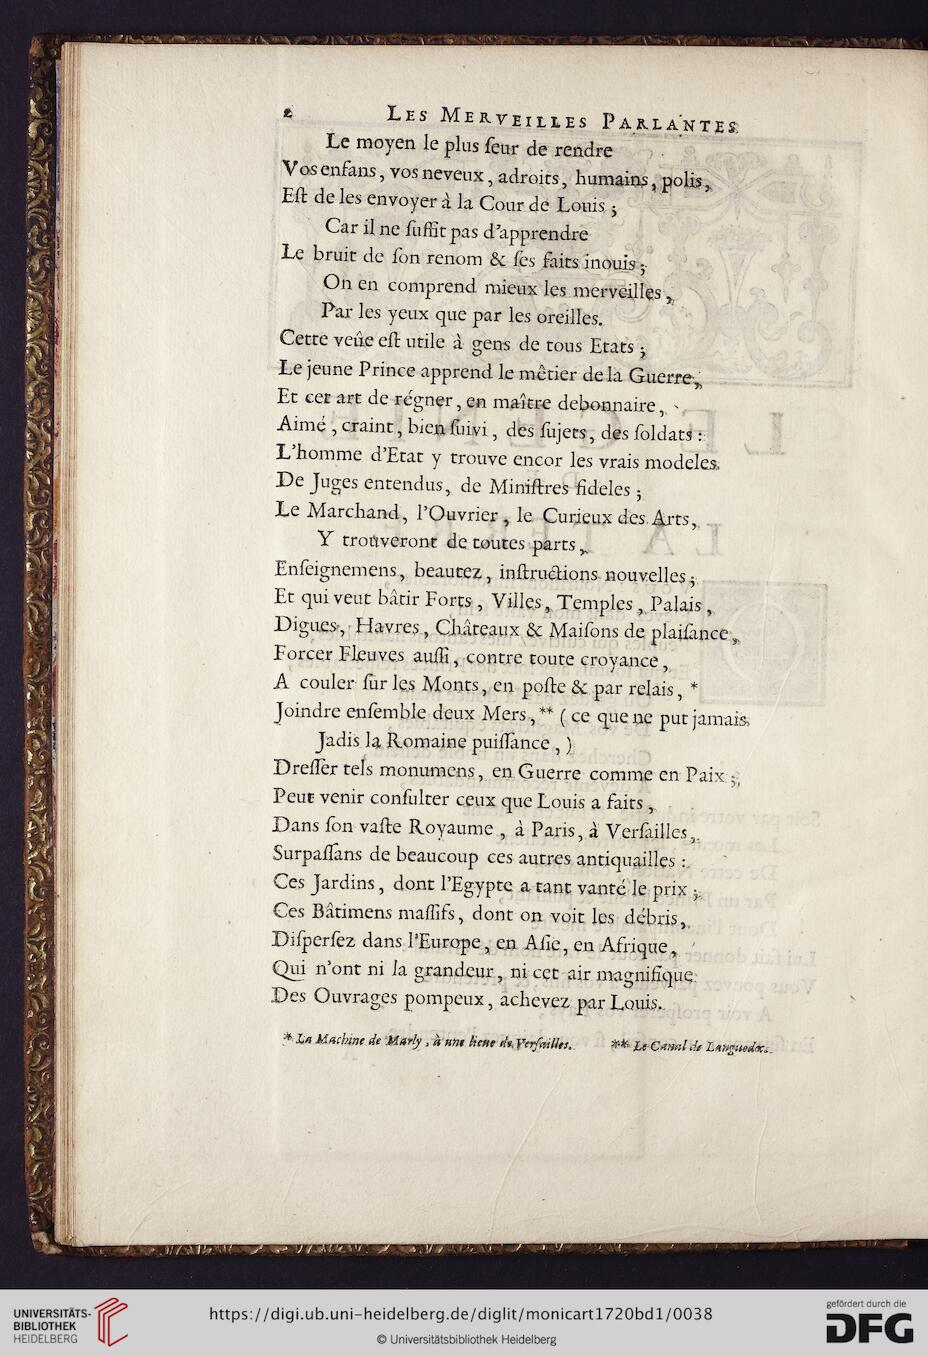 2 LES MERVEILLES PARLANTES
Le moyen le plus ſeur de rendre
Vos enfans, vos neveux, adroits, humains, polis,
Eſt de les envoyer à la Cour de Louis ;
Car il ne ſuffit pas d'apprendre
Le bruit de ſon renom & ſes faits inouis ;
On en comprend mieux les merveilles,
Par les yeux que par les oreilles.
Cette veûe eſt utile à gens de tous Etats ;
Le jeune Prince apprend le mêtier de la Guerre,
Et cet art de régner, en maître debonnaire,
Aimé, craint, bien ſuivi, des ſujets, des ſoldats :
L'homme d'Etat y trouve encor les vrais modeles
De Juges entendus, de Miniſtres fideles ;
Le Marchand, l'Ouvrier, le Curieux des Arts,
Y trouveront de toutes parts,
Enſeignemens, beautez, inſtructions nouvelles ;
Et qui veut bâtir Forts, Villes, Temples, Palais,
Digues, Havres, Châteaux & Maiſons de plaiſance,
Forcer Fleuves auſſi, contre toute croyance,
A couler ſur les Monts, en poſte & par relais, *
Joindre enſemble deux Mers, ** ( ce que ne put jamais,
Jadis la Romaine puiſſance, )
Dreſſer tels monumens, en Guerre comme en Paix ;
Peut venir conſulter ceux que Louis a faits,
Dans ſon vaſte Royaume, à Paris, à Verſailles,
Surpaſſans de beaucoup ces autres antiquailles :
Ces Jardins, dont l'Egypte a tant vanté le prix ;
Ces Bâtimens maſſifs, dont on voit les débris,
Diſperſez dans l'Europe, en Aſie, en Afrique,
Qui n'ont ni la grandeur, ni cet air magnifique
Des Ouvrages pompeux, achevez par Louis.
* La Machine de Marly, à une lieue de Verſailles. ** Le Canal de Languedoc.
UNIVERSITÄTS-
BIBLIOTHEK
HEIDELBERG
https://digi.ub.uni-heidelberg.de/diglit/monicart1720bd1/0038
© Universitätsbibliothek Heidelberg
gefördert durch die
DFG